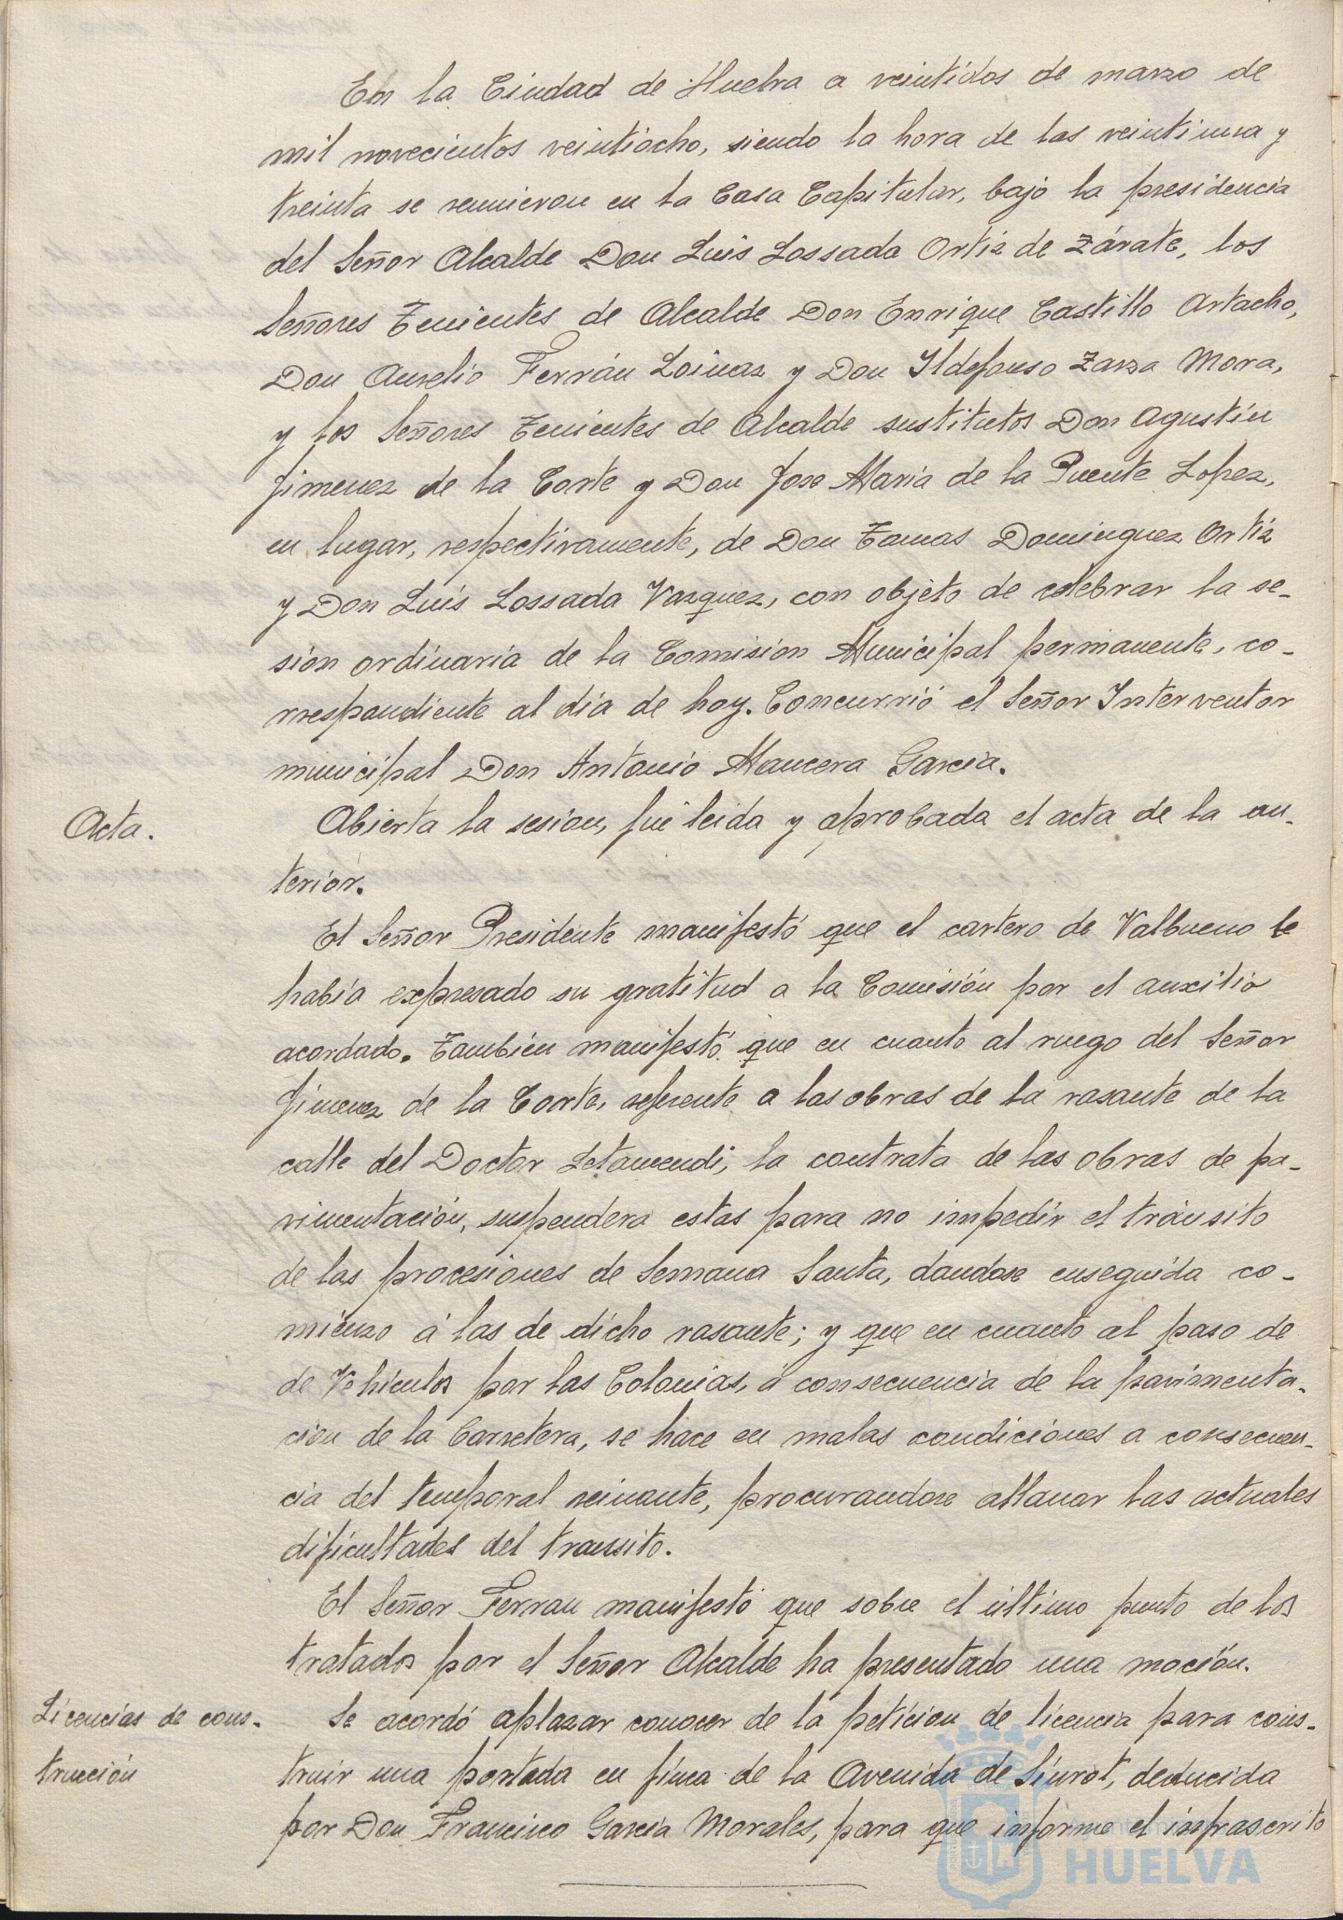 En la Ciudad de Huelva a veintidos de marzo de
mil novecientos veintiocho, siendo la hora de las veintiuna y
treinta se reunieron en la Casa Capitular, bajo la presidencia
del Señor Alcalde Don Luis Lossada Ortiz de Zárate, los
Señores Tenientes de Alcalde Don Enrique Castillo Artacho,
Don Aurelio Ferrán Loinaz y Don Ildefonso Zarza Mora,
y los Señores Tenientes de Alcalde sustitutos Don Agustín
Jimenez de la Corte y Don Jose María de la Puente Lopez,
en lugar, respectivamente, de Don Tomas Dominguez Ortiz
y Don Luis Lossada Vazquez, con objeto de celebrar la se-
sion ordinaria de la Comision Municipal permanente, co-
rrespondiente al día de hoy. Concurrió el Señor Interventor
municipal Don Antonio Mancera Garcia.
Acta.
Abierta la sesion, fue leida y aprobada el acta de la an-
terior.
El Señor Presidente manifestó que el cartero de Valbueno le
había expresado su gratitud a la Comisión por el auxilio
acordado. Tambien manifestó que en cuanto al ruego del Señor
Jimenez de la Corte, referente a las obras de la rasante de la
calle del Doctor Letamendi, la contrata de las obras de pa-
vimentación, suspendera estas para no impedir el tránsito
de las procesiones de Semana Santa, dandose enseguida co-
mienzo á las de dicho rasante; y que en cuanto al paso de
de Vehiculos por las Colonias, á consecuencia de la pavimenta-
cion de la Carretera, se hace en malas condiciones a consecuen-
cia del temporal reinante, procurandose allanar las actuales
dificultades del transito.
El Señor Ferran manifestó que sobre el último punto de los
tratados por el Señor Alcalde ha presentado una moción.
Licencias de cons-
trucción
Se acordó aplazar conocer de la petición de licencia para cons-
truir una portada en finca de la Avenida de Siurot, deducida
por Don Francisco Garcia Morales, para que informe el infrascrito
HUELVA